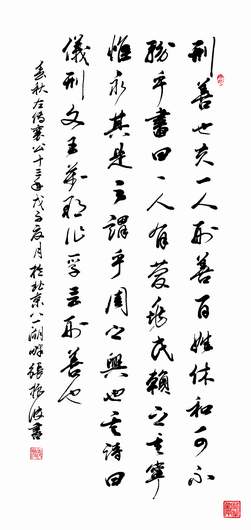 刑善也夫一人刑善百姓休和可不
務乎書曰一人有慶兆民賴之其寧
惟永其是之謂乎周之興也其詩曰
儀刑文王萬邦作孚言刑善也
春秋左傳襄公十三年戊子夏月於北京八一湖畔張振波書